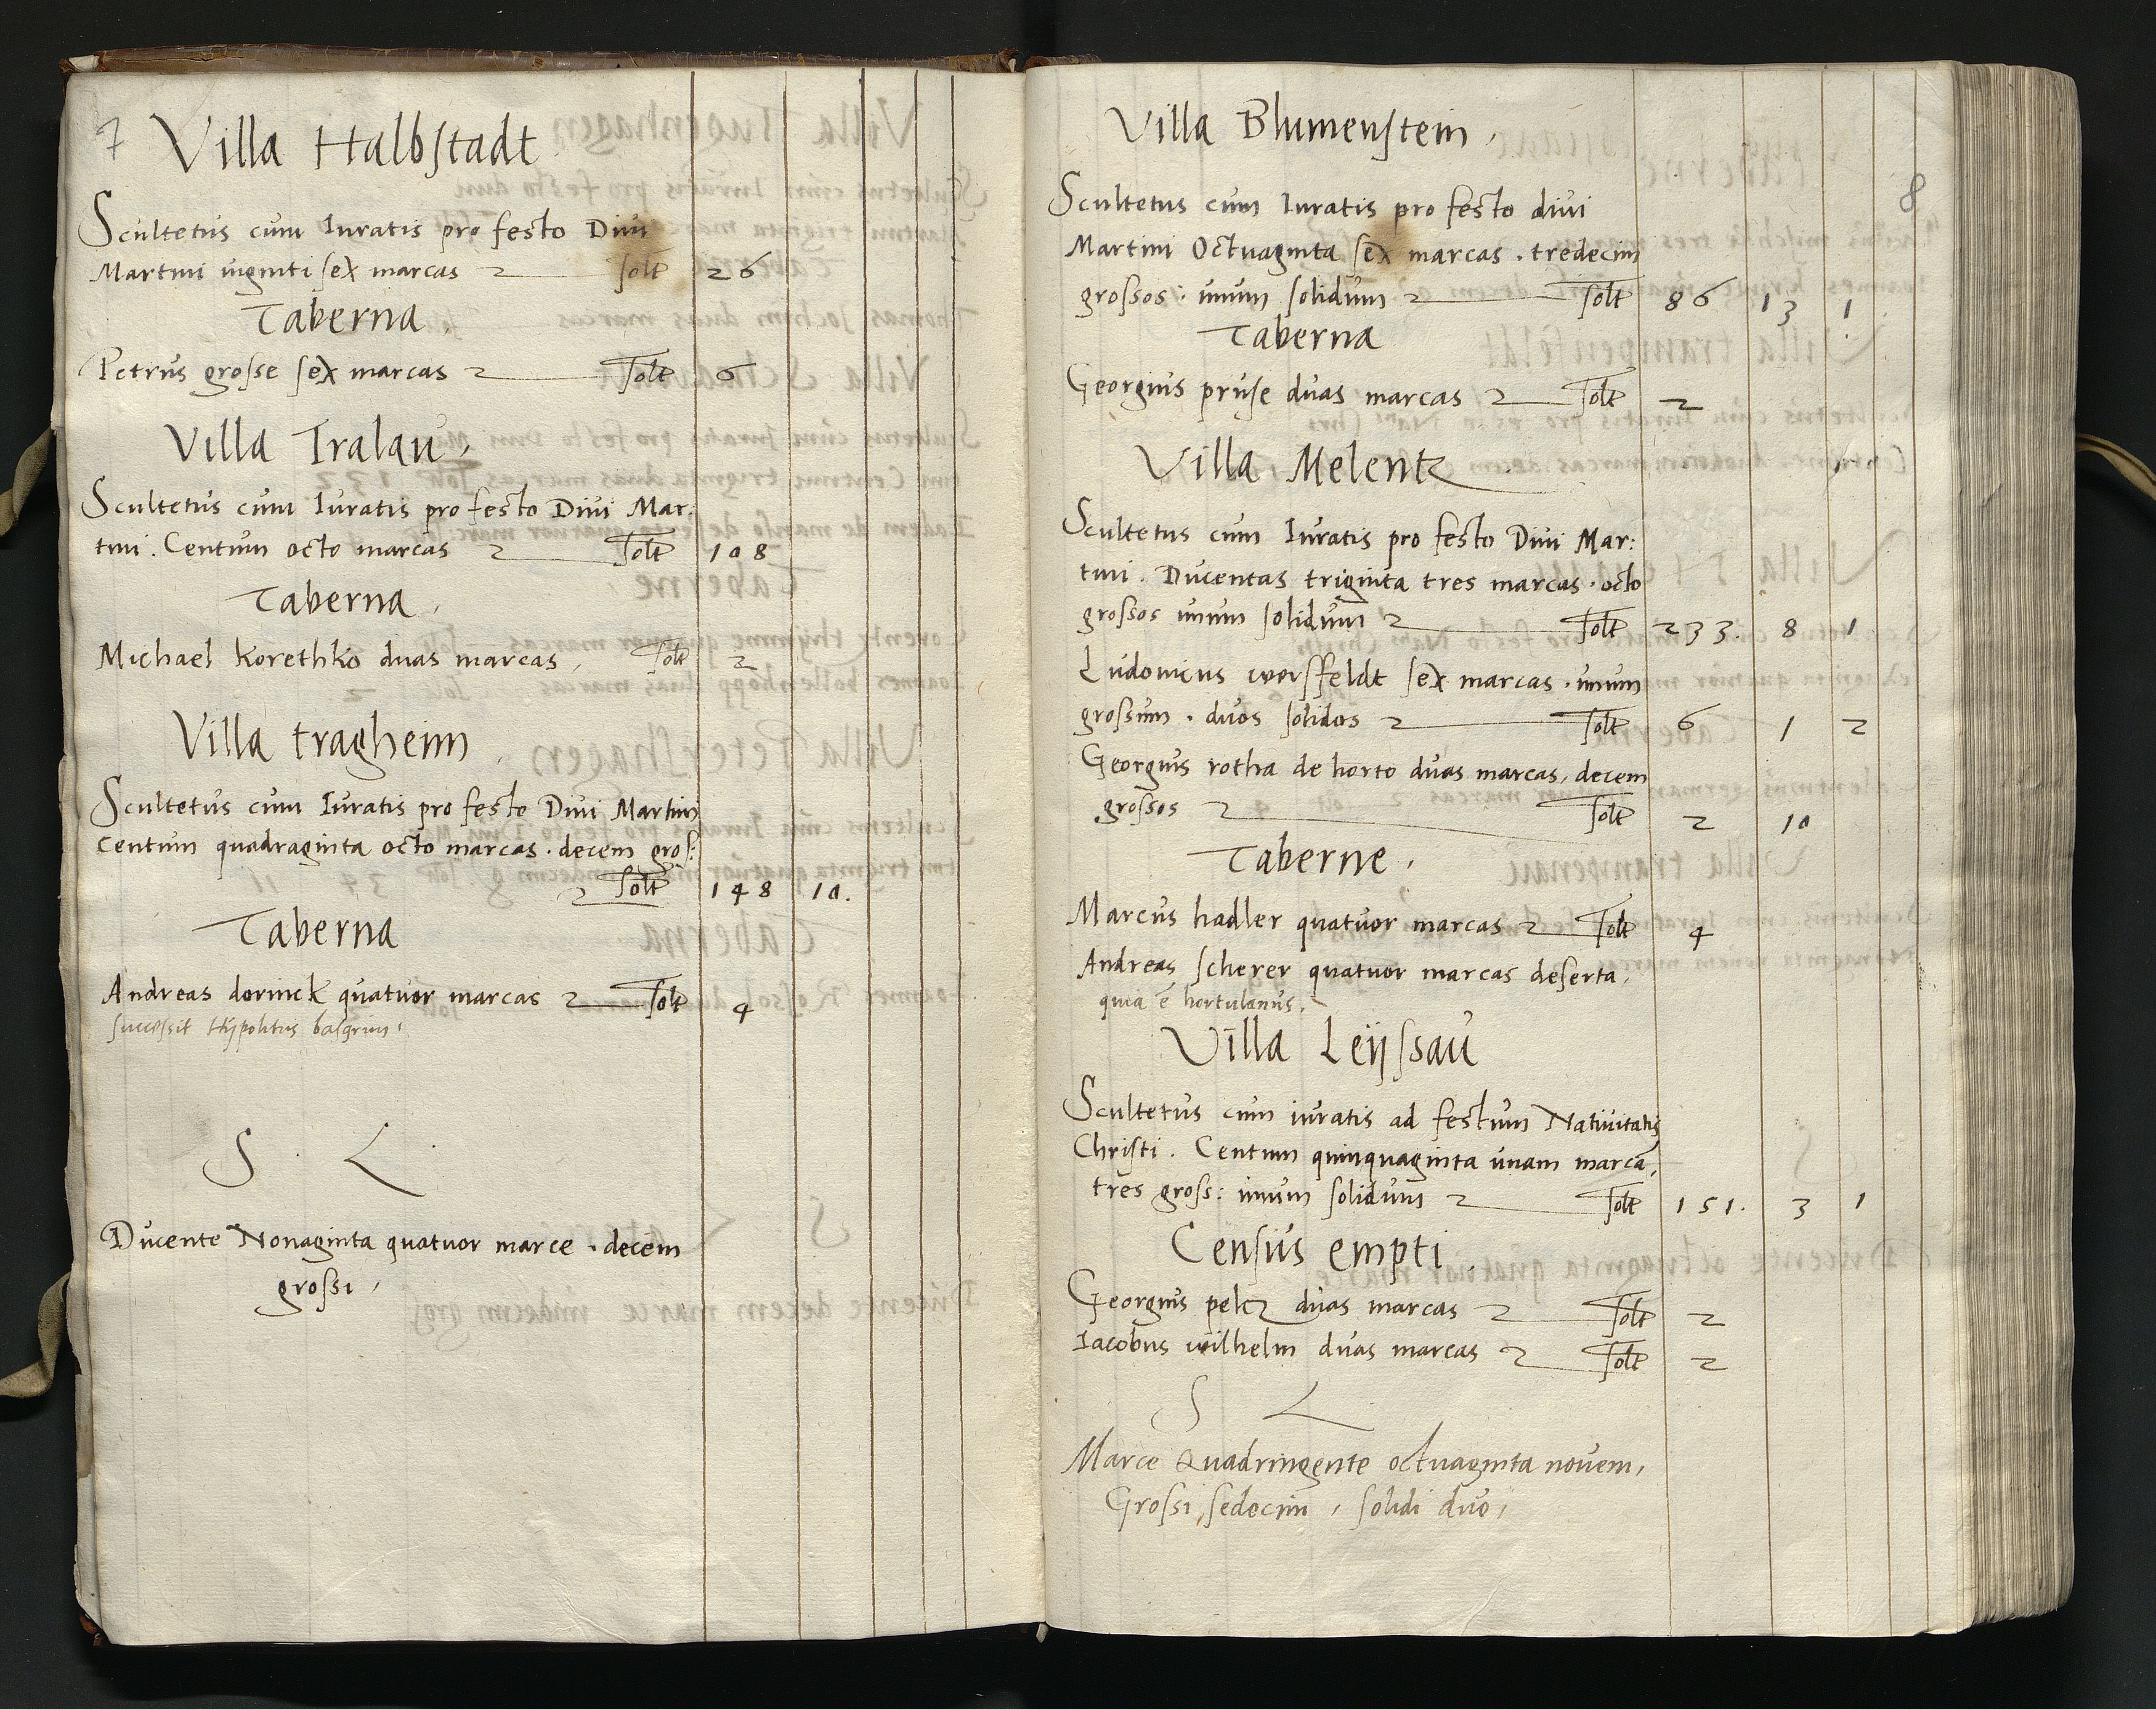 7
Villa Halbstadt
Scultetus cum Iuratis pro festo Diui
Martini uiginti sex marcas solt 26
Taberna.
Petrus grosse sex marcas solt 6
Villa Tralau.
Scultetus cum Iuratis pro festo Diui Mar:
tini. Centum octo marcas solt 108
Taberna.
Michael Korethko duas marcas, solt 2
Villa tragheim
Scultetus cum Iuratis pro festo Diui Martini
Centum quadraginta octo marcas. decem gros:
solt 148 10.
Taberna
Andreas dorinck quatuor marcas solt 4
successit Hÿpolitus
S. L
Ducente Nonaginta quatuor marce. decem
grossi.
8
Villa Blumenstein.
Scultetus cum Iuratis pro festo diui
Martini Octuaginta sex marcas. tredecim
grossos: unum solidum solt 86 13 1
Taberna
Georgius pruse duas marcas solt 2
Villa Melentz
Scultetus cum Iuratis pro festo Diui Mar:
tini. Ducentas triginta tres marcas. octo
grossos unum solidum solt 233. 8 1
Ludouicus worffeldt sex marcas. unum
grossum. duos solidos solt 6 1 2
Georgius rotha de horto duas marcas, decem
grossos solt 2 10
Taberne.
Marcus hadler quatuor marcas solt 4
Andreas scherer quatuor marcas deserta.
quia ē hortulanus.
Villa Leÿssau
Scultetus cum iuratis ad festum Natiuitatis
Christi. Centum quinquaginta unam marcā,
tres gross: unum solidum solt 151. 3 1
Census empti
Georgius peltz duas marcas solt 2
Iacobus wilhelm duas marcas solt 2
S L
Marce Quadringente octuaginta nouem,
Grossi sedecim, solidi duo,